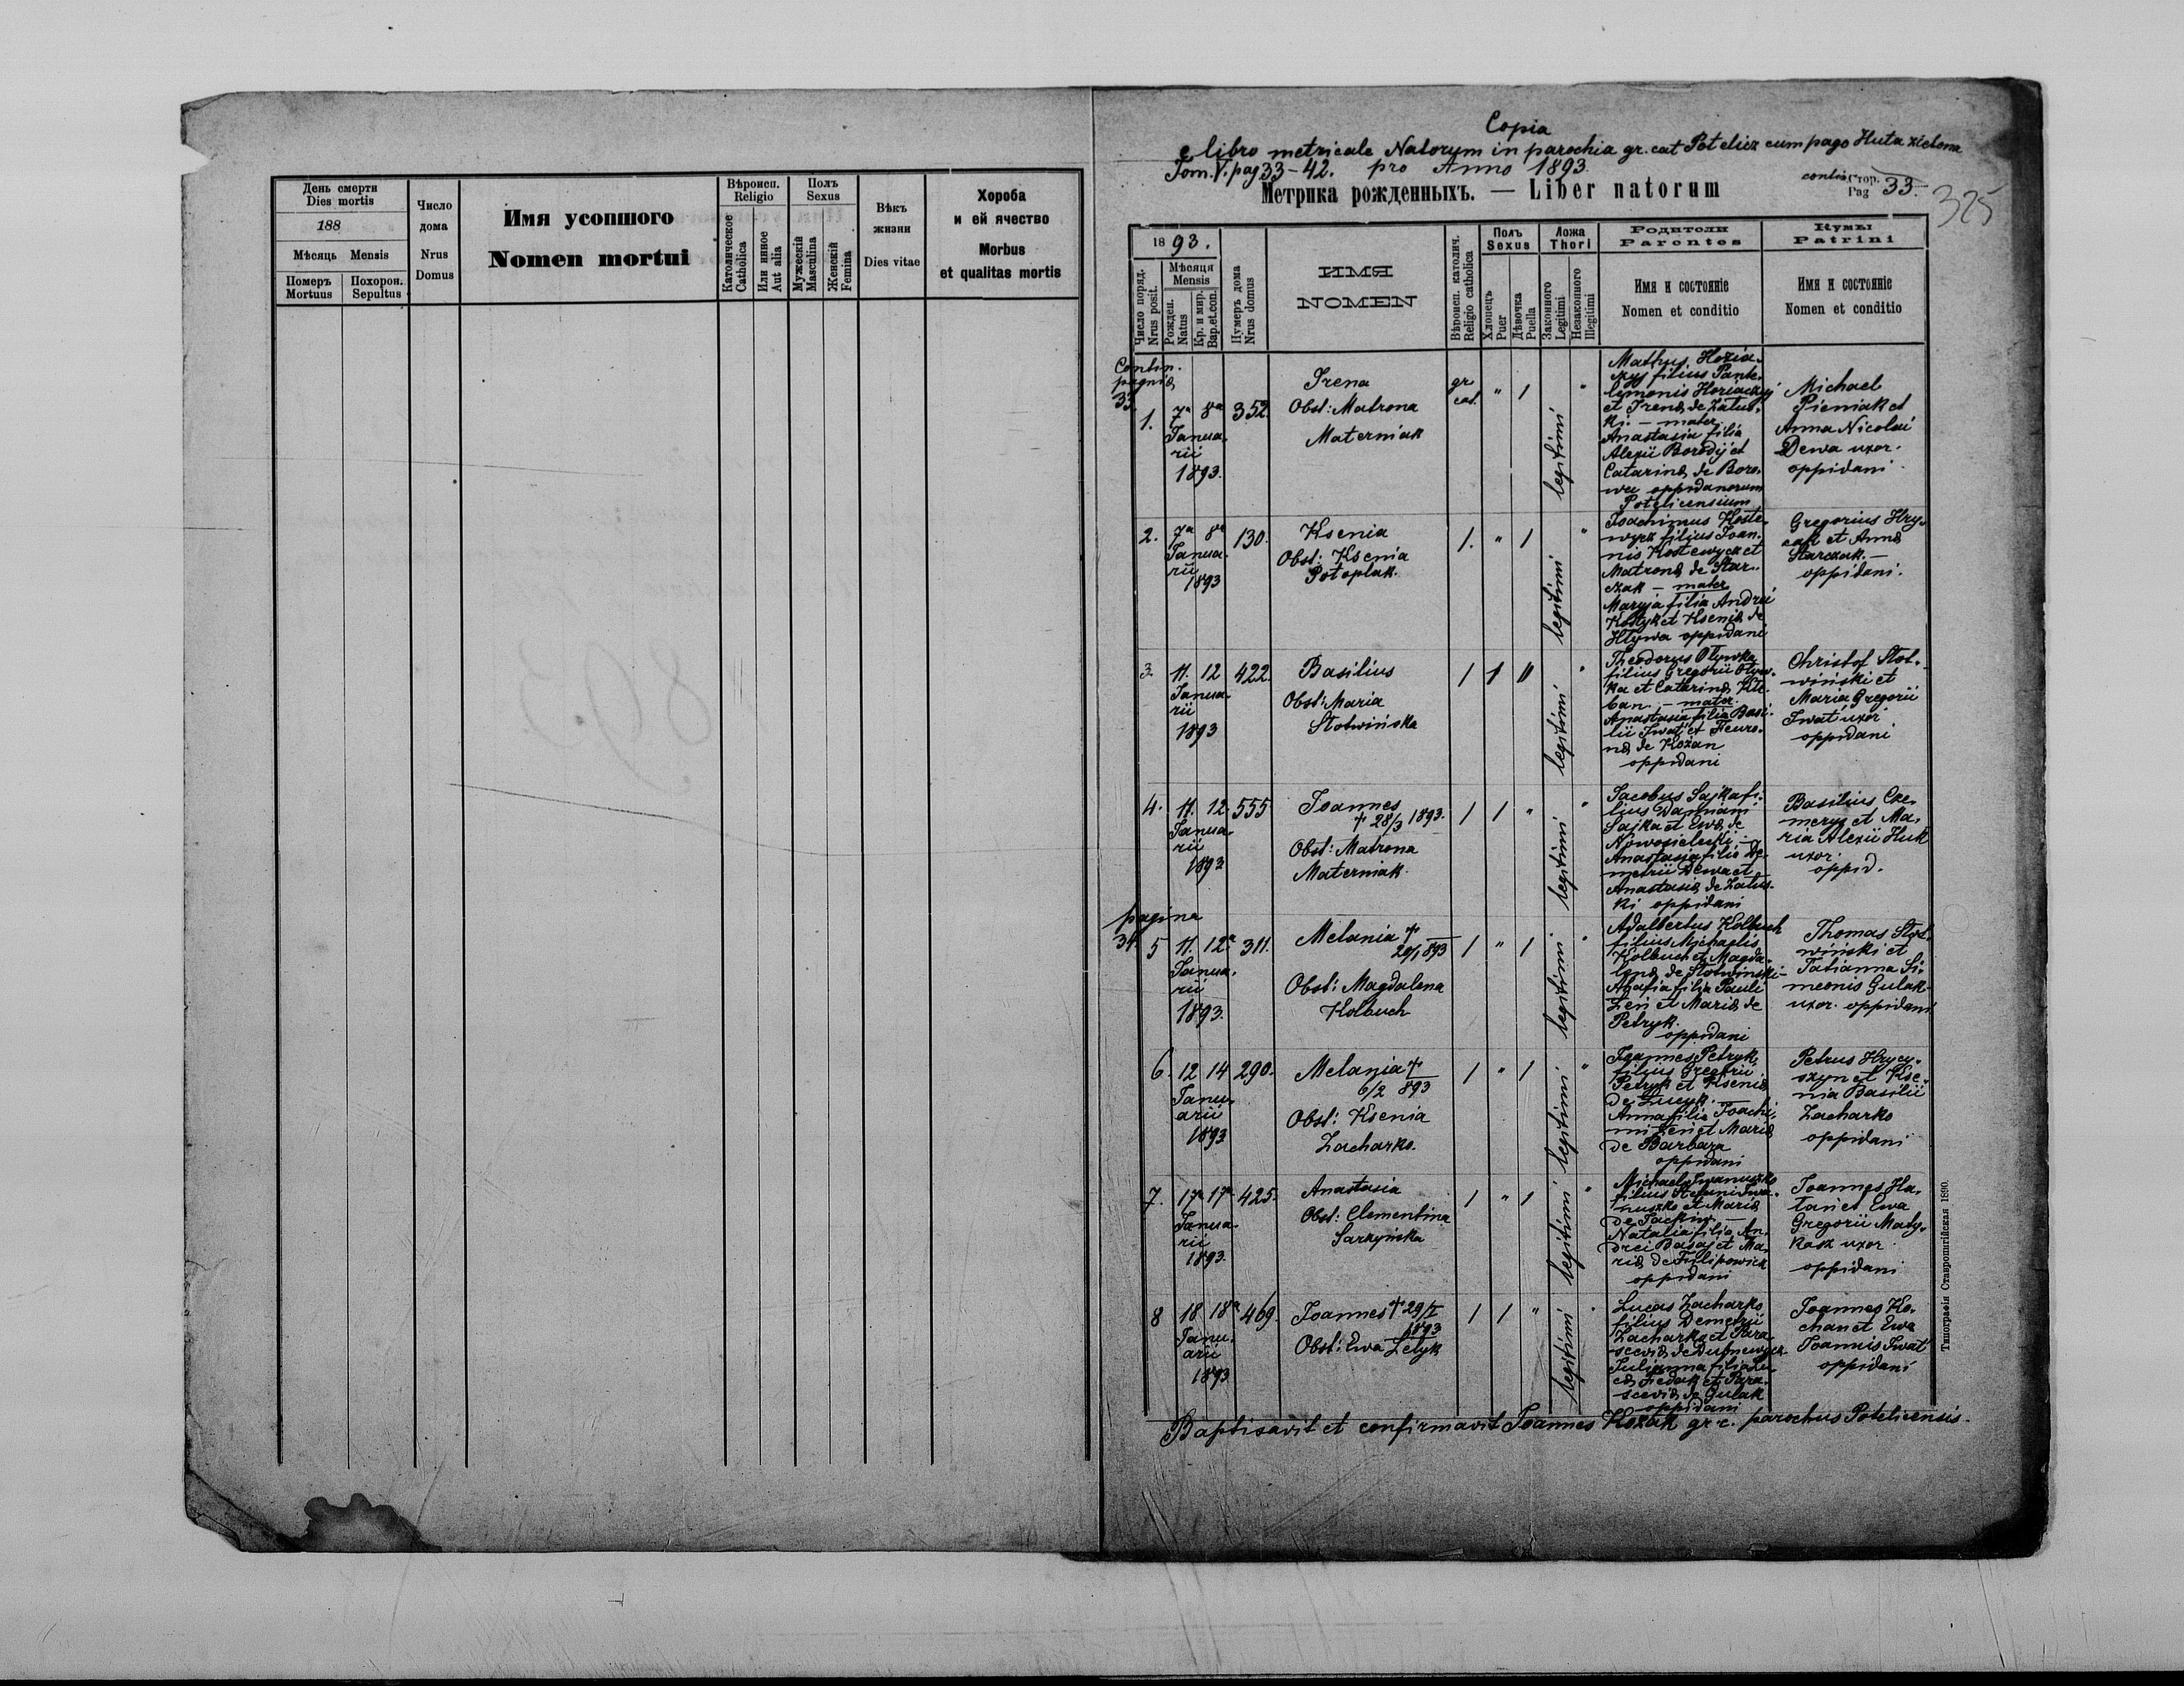 День смерти
Dies mortis
188
Мѣсяць Mensis
Померъ
Mortuus
Похорон.
Sepultus
Число
дома
Nrus
Domus
Имя усопшого
Nomen mortui
Вѣроисп.
Religio
Католическое
Catholica
Или инное
Aut alia
Полъ
Sexus
Мужескій
Masculina
Женскій
Femina
Вѣкъ
жизни
Dies vitae
Хороба
и ей ячество
Morbus
et qualitas mortis
Copia
e libro metricale Natorum in parochia gr. cat Potelicz cum pago Huta zielona
Tom. V. pag 33-42. pro Anno 1893.
Метрика рожденныхъ. — Liber natorum
Стор.
Pag 33.
325
1893.
Число поряд.
Nrus posit.
Мѣсяця
Mensis
Рожден.
Natus
Кр. и мир.
Bap.et.con.
Нумеръ дома
Nrus domus
ИМЯ
NOMEN
Вѣроисп. католич.
Religio catholica
Полъ
Sexus
Хлопецъ
Puer
Дѣвочка
Puella
Ложа
Thori
Законного
Legitimi
Незаконного
Illegitimi
Родители
Parentes
Имя и состояніе
Nomen et conditio
Кумы
Patrini
Имя и состояніе
Nomen et conditio
Contin.
33.
1. 7ª 8ª 352
Januarii
1893.
Irena
Obst: Matrona
Materniak
gr cat. " 1 legitimi "
Mathus Horia-
czyj filius Pante-
lymonis Horiaczyj
et Irenæ de Zatus-
ki. — mater
Anastasia filia
Alexii Borodij et
Catarinæ de Boro-
wec oppidanorum
Potelicensium
Michael
Pieniak et
Anna Nicolai
Dewa uxor.
oppidani.
2. 7ª 8ª 130.
Januarii
1893
Ksenia
Obst: Ksenia
Potoplak.
1. " 1 legitimi "
Joachimus Koste-
wycz filius Joan-
nis Kostewycz et
Matronæ de Star-
czak — mater
Maryja filia Andrei
Kostyk et Kseniæ de
Hlywa oppidani
Gregorius Hry-
cak et Anna
Starczak. —
oppidani.
3. 11. 12 422.
Januarii
1893
Basilius
Obst: Maria
Słotwińska
1 1 " legitimi "
Theodorus Olywka
filius Gregorii Olyw-
ka et Catarinæ
ban. — mater
Anastasia filia Basi-
lii Iwat et Feuro-
næ de Kożan
oppidani
Christof Słot-
wiński et
Maria Gregorii
Iwat uxor
oppidani
4. 11. 12 555
Januarii
1893
Joannes
† 28/3 1893.
Obst: Matrona
Materniak.
1 1 " legitimi "
Jacobus Sajka fi-
lius Damiani
Sajka et Ewæ de
Nowosielecki —
Anastasia filia De-
metrii Dewa et
Anastasiæ de Zatus-
ki oppidani
Basilius Cze-
merys et Ma-
ria Alexii Huk
uxor.
oppid.
pagina
34. 5 11. 12ª 311.
Januarii
1893.
Melania †
20/1 893
Obst: Magdalena
Kolbuch
1 " 1 legitimi "
Adalbertus Kolbuch
filius Michaelis
Kolbuch et Magda-
lenæ de Słotwinski —
Ahafia filia Pauli
Zen et Mariæ de
Petryk.
oppidani
Thomas Słot-
wiński et
Tatianna Si-
meonis Gulak
uxor. oppidani
6. 12 14 290.
Januarii
1893
Melania †
6/2 893
Obst: Ksenia
Zacharko.
1 " 1 legitimi "
Joannes Petryk,
filius Gregorii
Petryk et Kseniæ
de Lucyk. —
Anna filia Joachi-
mi Zen et Mariæ
de Barbara
oppidani
Petrus Hrycy-
szyn et Kse-
nia Basilii
Zacharko
oppidani
7. 17ª 17ª 425.
Januarii
1893.
Anastasia
Obst: Clementina
Sarzyńska
1 " 1 legitimi "
Michael Iwanuszko
filius Stefani Iwa-
nuszko et Mariæ
de Jackiw. —
Natalia filia An-
drei Basaj et Ma-
riæ de Filipowicz
oppidani
Joannes Ha-
tan et Ewa
Gregorii Maty-
kasz uxor
oppidani
8 18 18ª 469.
Januarii
1893
Joannes † 29/I
1893
Obst: Ewa Letyk
1 1 " legitimi "
Lucas Zacharko
filius Demetrii
Zacharko et Para-
sceviæ de
Julianna filia Lu-
cæ Fedak et Para-
sceviæ de Gulak
oppidani
Joannes Ko-
chan et Ewa
Joannis Iwat
oppidani
Baptisavit et confirmavit Joannes Kozak gr. c. parochus Potelicensis.
Типографія Ставропигійская 1890.